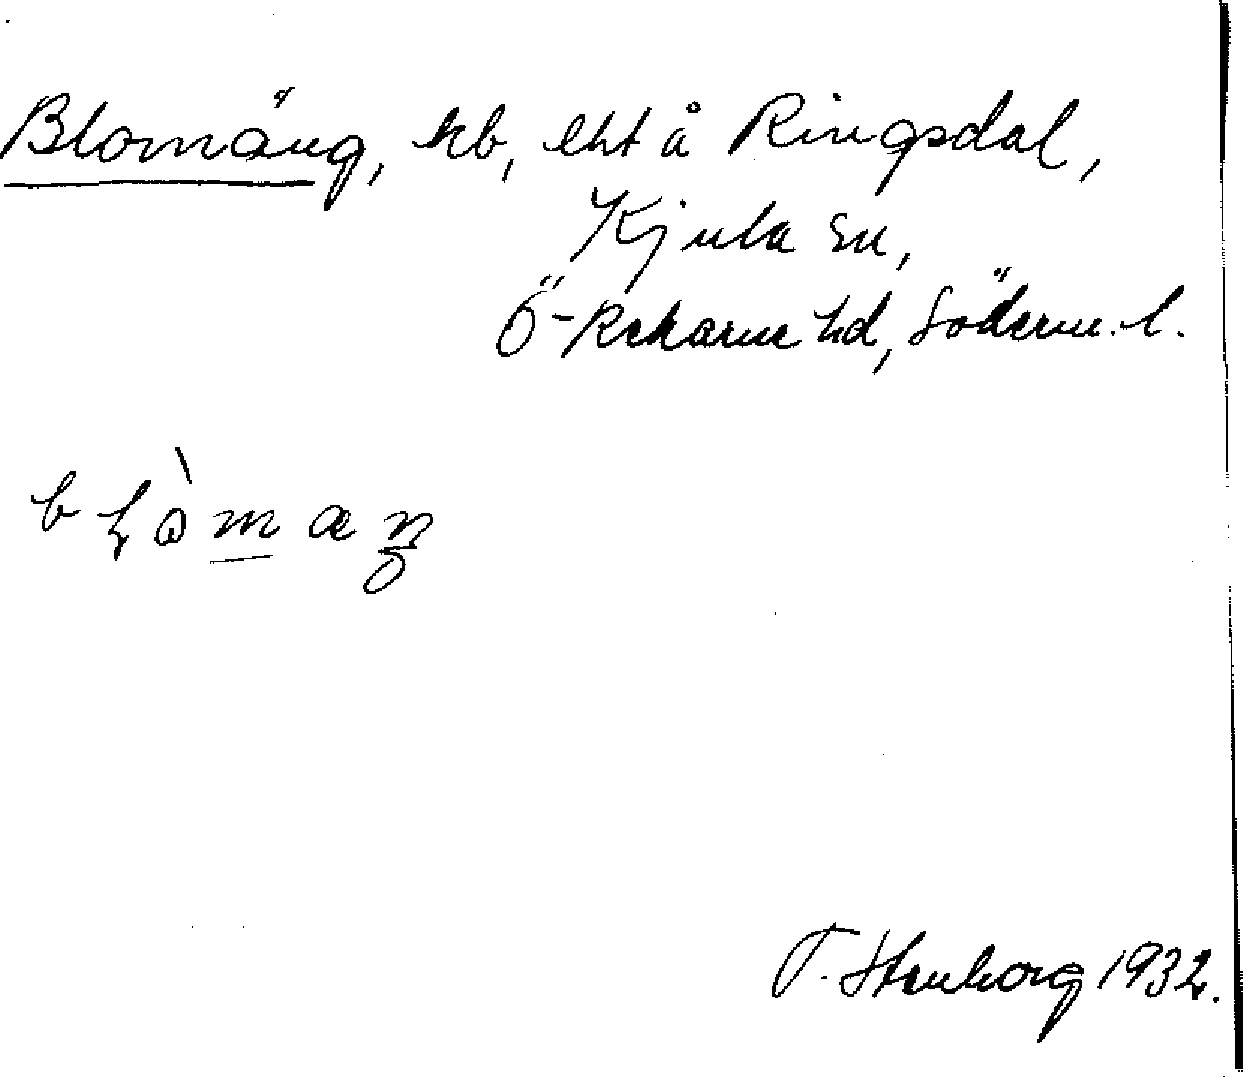 Blomäng, hb, eht å Ringsdal,
Kjula sn,
Ö-Rekarne hd, Söderm. l.
T. Stenborg 1932.